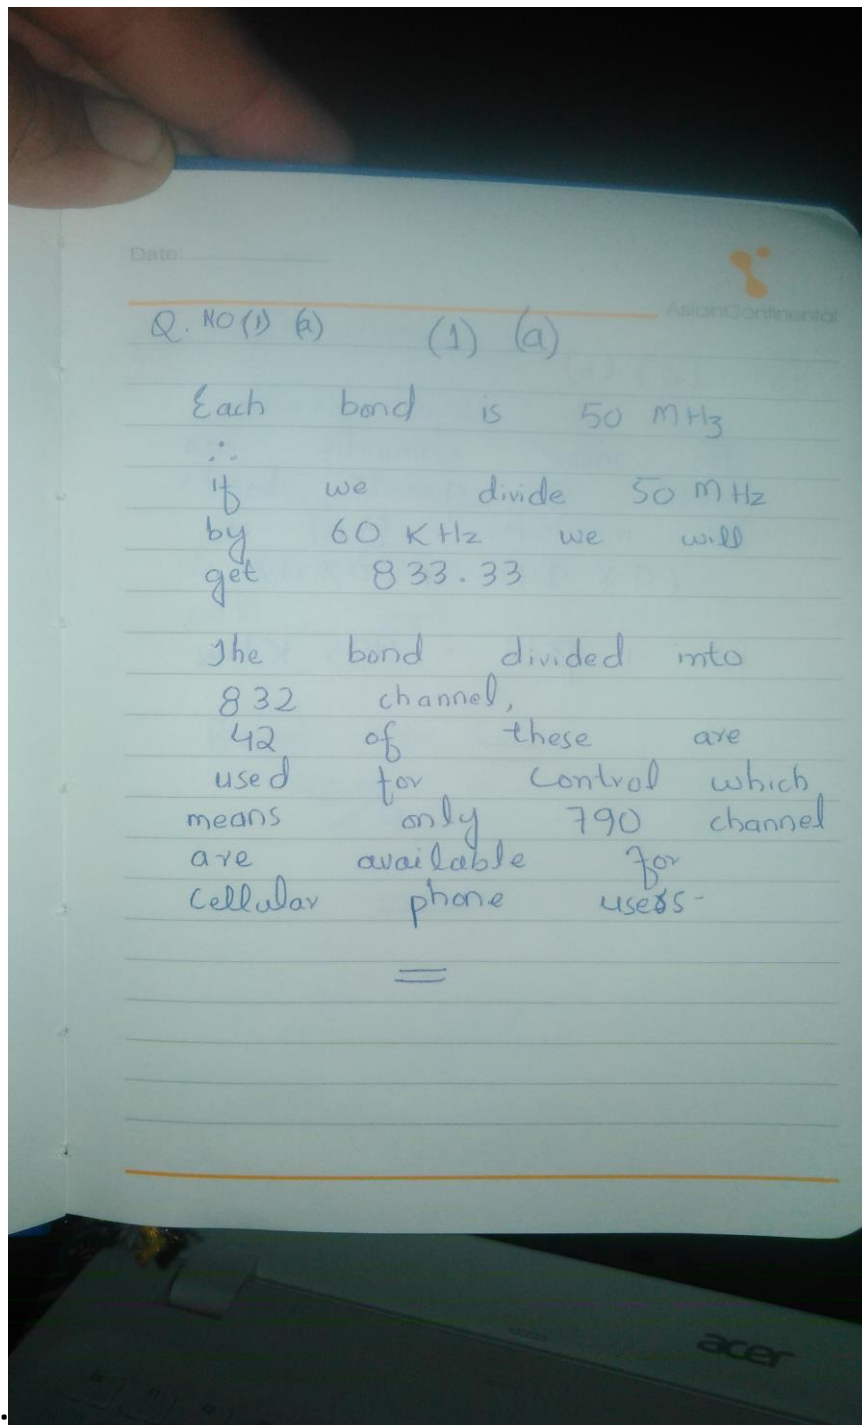 Date:
AsianContinental
Q. NO (1) (a) (1) (a)
Each bond is 50 MHz
∴
if we divide 50 MHz
by 60 KHz we will
get 833.33
The bond divided into
832 channel,
42 of these are
used for control which
means only 790 channel
are available for
cellular phone users-
acer